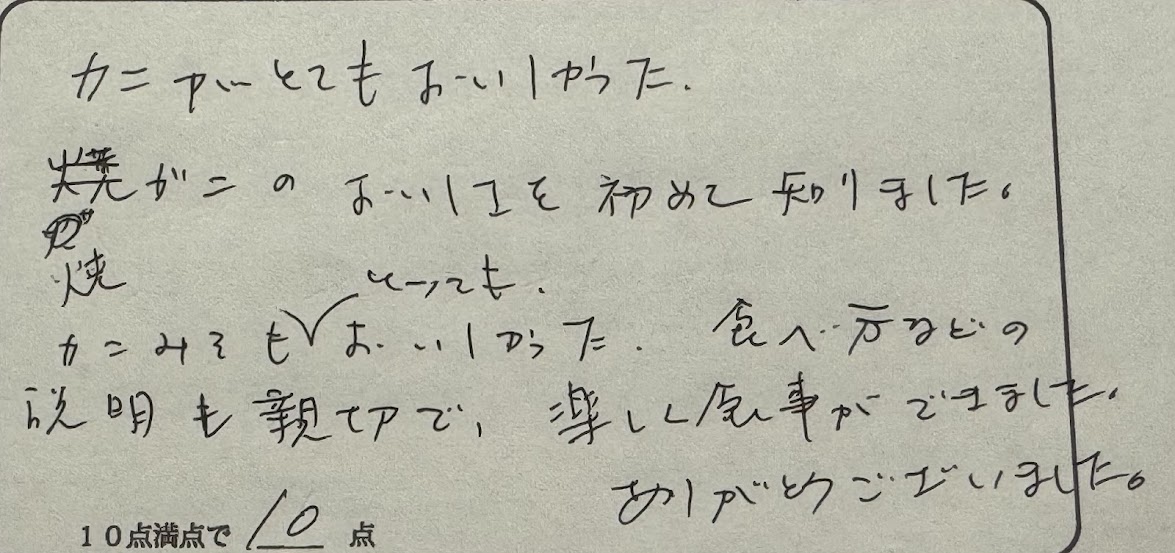 カニがとてもおいしかった.
焼ガニのおいしさを初めて知りました。
焼
とっても.
カニみそもおいしかった. 食べ方などの
説明も親切で, 楽しく食事ができました.
ありがとうございました。
10点満点で 10 点